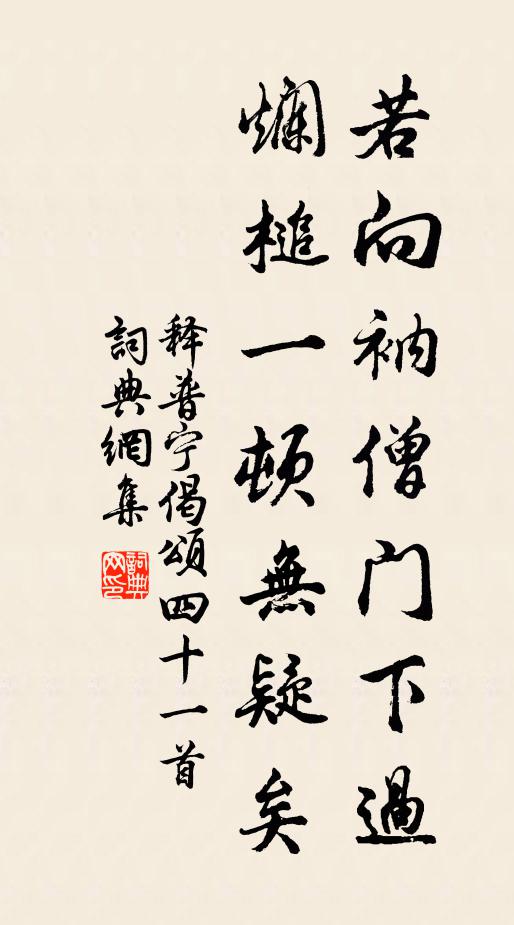 若向衲僧门下過
爛槌一頓無疑矣
释普宁偈頌四十一首
詞典網集
詞典
网印